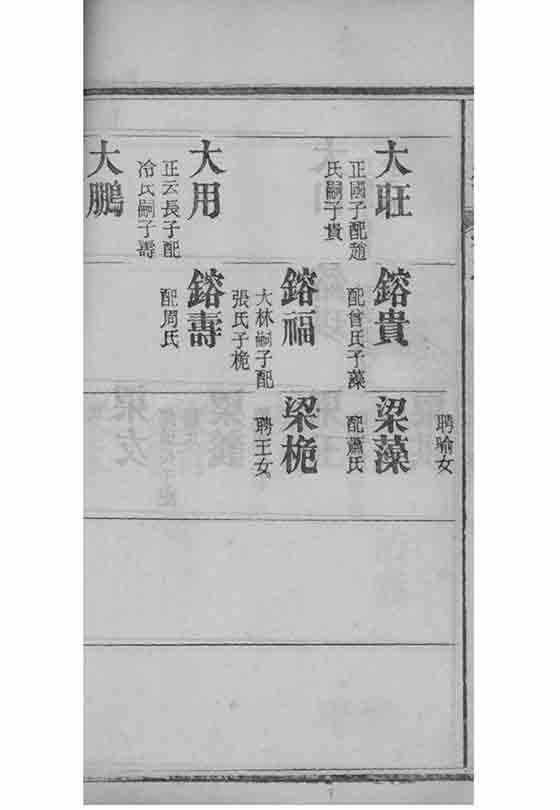 聘喻女
大旺
正國子配趙
氏嗣子貴
鎔貴
配曾氏子藻
梁藻
配蕭氏
鎔福
大林嗣子配
張氏子桅
梁桅
聘王女
大用
正云長子配
冷氏嗣子壽
鎔壽
配周氏
大鵬